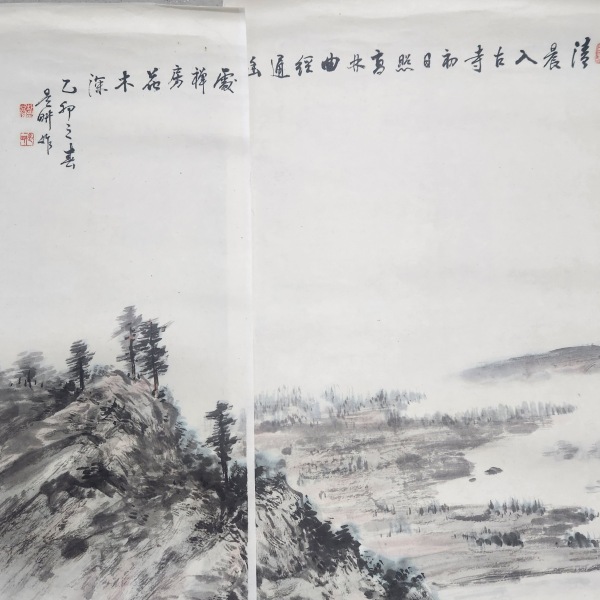 清晨入古寺初日照高林曲径通幽處禅房花木深
乙卯之春